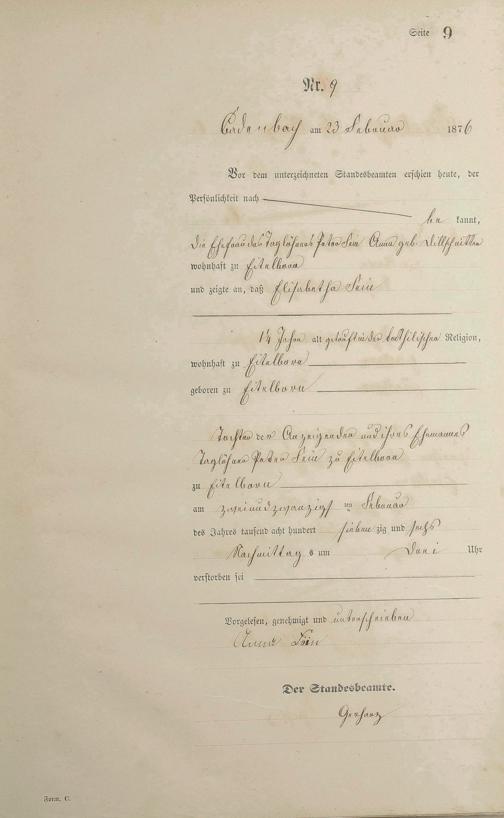 Seite 9
Nr. 9
Cadenbach am 23 Februar 1876
Vor dem unterzeichneten Standesbeamten erschien heute, der
Persönlichkeit nach
be kannt,
die Ehefrau des Taglöhners Peter Anna geb.
wohnhaft zu Eitelborn
und zeigte an, daß Elisabetha
14 Jahre alt getauft in der katholischen Religion,
wohnhaft zu Eitelborn
geboren zu Eitelborn
Tochter der Anzeigenden und ihres Ehemannes
Taglöhner Peter zu Eitelborn
zu Eitelborn
am zweiundzwanzigsten Februar
des Jahres tausend acht hundert sieben zig und sechs
Nachmittag s um Drei Uhr
verstorben sei
Vorgelesen, genehmigt und unterschrieben
Anna
Der Standesbeamte.
Gerharz
Form. C.